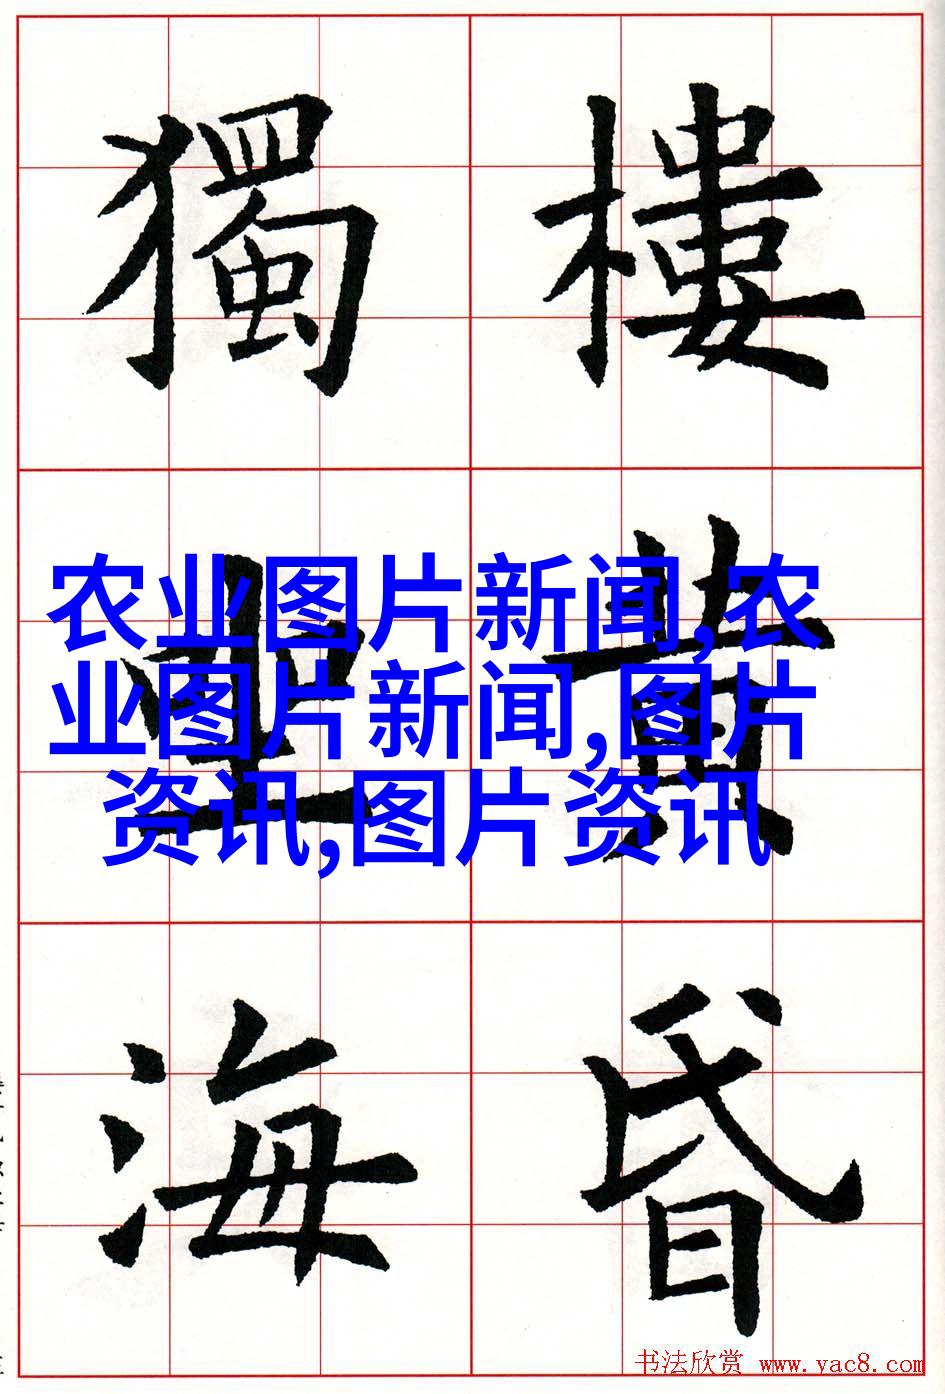 樓黄昏
獨坐海
农业图片新闻,农
业图片新闻,图片
资讯,图片资讯
书法欣赏 www.yac8.com